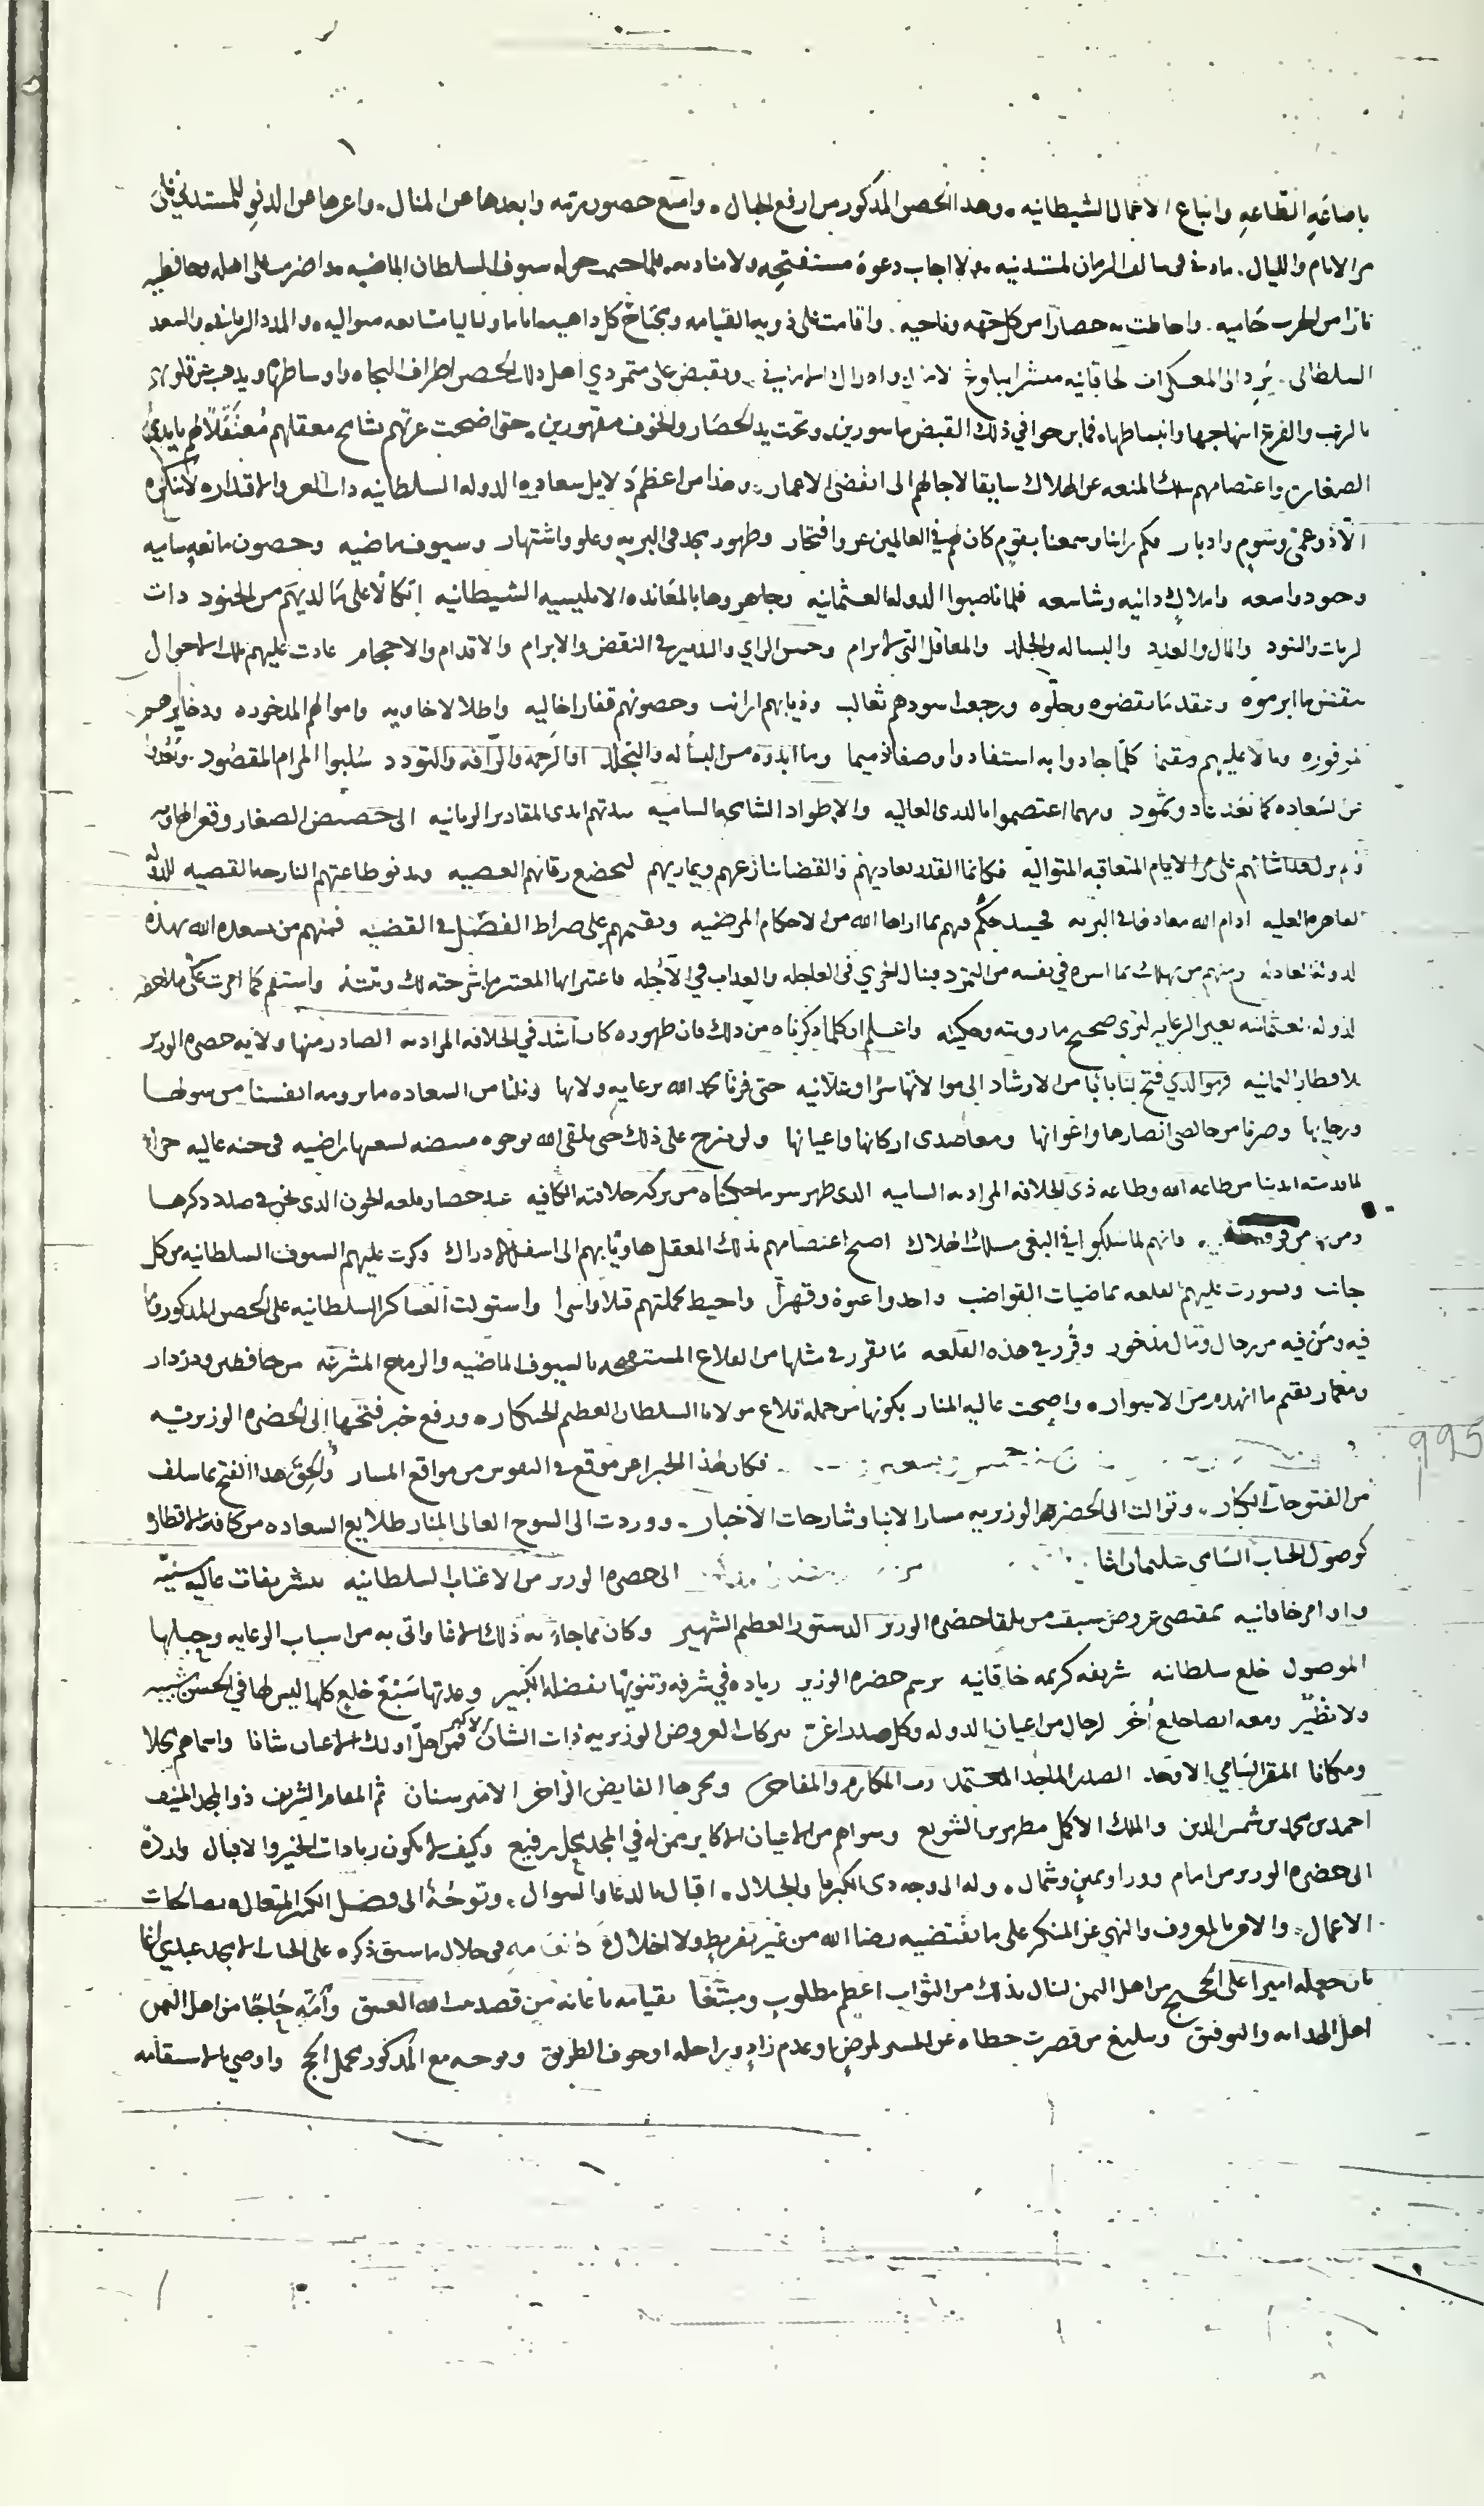 باضاعه الطاعه واتباع الاعمال الشيطانيه وهذا الحصن المذكور من ارفع الجبال وامنع حصون يمنه وابعدها عن المنال واعرها عن الدنو للمستدني على
مر الايام والليال ما دنى في سالف الزمان لمستدنيه ولا اجاب دعوة مستفتحه ولا مناديه فلما حيمت حوله سيوف السلطان الماضيه اضرمت على اهله ومحافظيه
نارًا من الحرب حاميه واحاطت به حصارًا من كل جهه وناحيه واقامت على ذويه القيامه كل داهيه اياما ولياليا متتابعه متواليه والمدد الرباني والسعد
السلطاني المعسكرات الخاقانيه وتقبض على متمردي اهل ذلك الحصن اطراف النجاه واوساطها ويدهب من قلوبهم
بالرعب والفزع ابتهاجها وانبساطها فما برحوا في ذلك القبض ماسورين وتحت يد الحصار والخوف مقهورين حتى اضحت عزتهم بشامخ معقلهم معتقلًا لهم بايدي
الصغار واعتصامهم بتلك المنعه عن الهلاك سابقا لاجالهم الى انقضى الاعمار وهذا من اعظم دلايل سعاده الدوله السلطانيه ذات العز والاقتدار لا ينكره
الا ذو عمى وشوم وادبار فكم راينا وسمعنا بقوم كان لهم في العالمين عز وافتخار وظهور مجد في البريه وعلو واشتهار وسيوف ماضيه وحصون مانعه ساميه
وجنود واسعه واملاك دانيه وشاسعه فلما ناصبوا الدوله العثمانيه وجاهروها بالمعانده الابليسيه الشيطانيه اتكالًا على ما لديهم من الجنود ذات
الرايات والبنود والمال والعدد والبساله والجلد والمعاقل التي لا ترام وحسن الراي والتدبير في النقض والابرام والاقدام والاحجام عادت عليهم تلك الاحوال
بنقض ما ابرموه وعقد ما نقضوه وحلوه ورجعت اسودهم ثعالب وذيابهم ارانب وحصونهم قفارا خاليه واطلالا خاويه واموالهم المدخوره ودخايرهم
الموفوره وبالا عليهم ونقما كلما جادوا به استفادوا وصفًا ذميما وما ابدوه من البساله والتجلد او الرحمه والرافه والتودد سلبوا المرام المقصود وبعدوا
عن السعاده كما بعدت عاد وثمود ومهما اعتصموا بالذرى العاليه والاطواد الشامخه الساميه الى حضيض الصغار وقعر الهاويه
على مر الايام المتعاقبه المتواليه فكانما القدر يعاديهم والقضا ينازعهم ويماريهم لتخضع رقابهم العصيه وتدنو طاعتهم النازحه القصيه للدوله
القاهره العليه ادام الله معادها في البريه فحينئذ حكم فيهم بما ارادها الله من الاحكام المرضيه ويقيمهم على صراط الفصل في القضيه فمنهم من يسعده الله بهذه
الدوله العادله ومنهم من يهلك بما اسره في نفسه من التمرد فينال الخزي في العاجله والعذاب في الاجله فاعتبر ايها المعتبر بما شرحته لك وتثبت واستقم كما امرت على ملاحظه
الدوله العثمانيه بعين الرعايه لترى صحيح ما رويته وحكيته واعلم ان كلما ذكرناه من ذلك فان ظهوره كان اشد في الخلافه المراديه الصادر منها ولايه حضره الوزير
للاقطار اليمانيه فهو الذي فتح لنا بابًا من الارشاد الى موالاتها سرا وعلانيه حتى فزنا بحمد الله برعايه ولائها ونلنا من السعاده ما ترومه انفسنا من سولها
ورجائها وصرنا من خالص انصارها واعوانها ومعاضدي اركانها واعيانها ولن نبرح على ذلك حتى نلقى الله بوجوه مبيضه لسعيها راضيه في جنه عاليه جزاء
لما قدمته ايدينا من طاعه الله وطاعه ذي الخلافه المراديه الساميه الذي ظهر سر ما حكيناه من بركه خلافته الكافيه عند حصار قلعه الحون الذي نحن في صدد ذكرها
فانهم لما سلكوا في البغي مسلك الهلاك اصبح اعتصامهم بذلك المعقل هاويًا بهم الى اسفل الادراك وكرت عليهم السيوف السلطانيه من كل
جانب وتسورت عليهم القلعه بماضيات القواضب واخذوا عنوة وقهرًا واحيط بجملتهم قتلًا واسرًا واستولت العساكر السلطانيه على الحصن المذكور وما
فيه ومن فيه من رجال ومال مذخور وقرر في هذه القلعه ما تقرر في مثلها من القلاع المستفتحه بالسيوف الماضيه والرماح المشرعه من محافظين ودزدار
ومعمار يقيم ما انهدم من الاسوار واصبحت عاليه المنار بكونها من جمله قلاع مولانا السلطان العظيم الخنكار ورفع خبر فتحها الى الحضره الوزيريه
فكان لهذا الخبر اعز موقع في النفوس من مواقع المسار والحق هذا الفتح بما سلف
من الفتوحات الكبار وتوالت الى الحضره الوزيريه مسار الانبا وشارحات الاخبار ووردت الى السوح العالي المنار طلايع السعاده من كافه الاقطار
كوصول الجناب السامي سليمان اغا الى حضره الوزير من الاعتاب السلطانيه بتشريفات عاليه سنيه
واوامر خاقانيه بمقتضى عروض سبقت من تلقا حضره الوزير الدستور العظيم الشهير وكان مما جاء به ذلك الاغا واتى به من اسباب الرعايه وحبلها
الموصول خلع سلطانيه شريفه كريمه خاقانيه برسم حضره الوزير زياده في شرفه وتنويهًا بفضله الكبير وعدتها سبع خلع كلها ليس لها في الحسن شبيه
ولا نظير ومعه ايضا خلع اخر لرجال من اعيان الدوله وكل صدر اغر ببركات العروض الوزيريه ذات الشان الاكبر فمن اجل اولئك الاعيان شانا واسماهم محلا
ومكانا المقر السامي الاوحد الصدر الماجد المعتمد رب المكارم والمفاخر وبحرها الفايض الزاخر الامير سنان ثم المقام الشريف ذو المجد المنيف
احمد بن محمد بن شمس الدين والملك الاكمل مطهر بن الشويع وسواهم من الاعيان الاكابر ممن له في المجد محل رفيع وكيف لا تكون زيادات الخير والاقبال وارده
الى حضره الوزير من امام وورا ويمين وشمال وله الى وجه ذي الكبريا والجلال اقبال بالدعا والسوال وتوجه الى فضل الكبير المتعال بصالحات
الاعمال والامر بالمعروف والنهي عن المنكر على ما يقتضيه رضا الله من غير تفريط ولا اخلال في خلال ما سبق ذكره على الجناب الامجد عبدي اغا
بان جعله اميرا على الحجيج من اهل اليمن لينال بذلك من الثواب اعظم مطلوب ومبتغا بقيامه باعانه من قصد بيت الله العتيق وامّه حاجًا من اهل اليمن
اهل الهدايه والتوفيق وتبليغ من قصرت خطاه عن المسير لمرض او عدم زاد وراحله او خوف الطريق وتوجه مع المذكور محمل الحج واوصي بالاستقامه
995